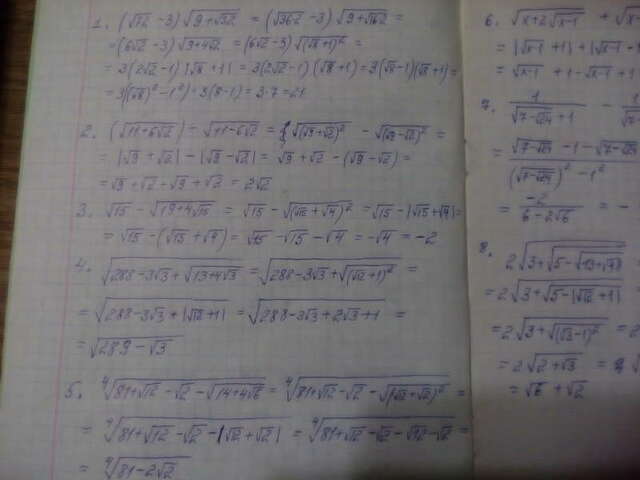 1. (√72 - 3)√9+√32 = (√36·2 - 3)√9+√16·2 =
= (6√2 - 3)√9+4√2 = (6√2 - 3)√(√8+1)² =
= 3(2√2 - 1)|√8 + 1| = 3(2√2 - 1)(√8 + 1) = 3(√8 - 1)(√8 + 1) =
= 3((√8)² - 1²) = 3(8 - 1) = 3·7 = 21
2. √11+6√2 - √11-6√2 = √(√9+√2)² - √(√9-√2)² =
= |√9 + √2| - |√9 - √2| = √9 + √2 - (√9 - √2) =
= √9 + √2 - √9 + √2 = 2√2
3. √15 - √19+4√15 = √15 - √(√15 + √4)² = √15 - |√15 + √4| =
= √15 - (√15 + √4) = √15 - √15 - √4 = -√4 = -2
4. √288-3√3+√13+4√3 = √288-3√3+√(√12+1)² =
= √288-3√3+|√12+1| = √288-3√3+2√3+1 =
= √289-√3
5. ⁴√81+√12-√2-√14+4√6 = ⁴√81+√12-√2-√(√12+√2)² =
= ⁴√81+√12-√2-|√12+√2| = ⁴√81+√12-√2-√12-√2 =
= ⁴√81-2√2
6. √x+2√x-1 + √x
= |√x-1 + 1| + |√x-1 -
= √x-1 + 1 - √x-1 + 1
7. 1/(√7-√24 + 1) - 1/(√7-
= (√7-√24 - 1 - √7-√24)/((√7-√24)² - 1²)
= -2/(6-2√6) = -
8. 2√3+√5-√13+√48
= 2√3+√5-|√12+1|
= 2√3+√(√3-1)² = 2
= 2√2+√3 =
= √6 + √2